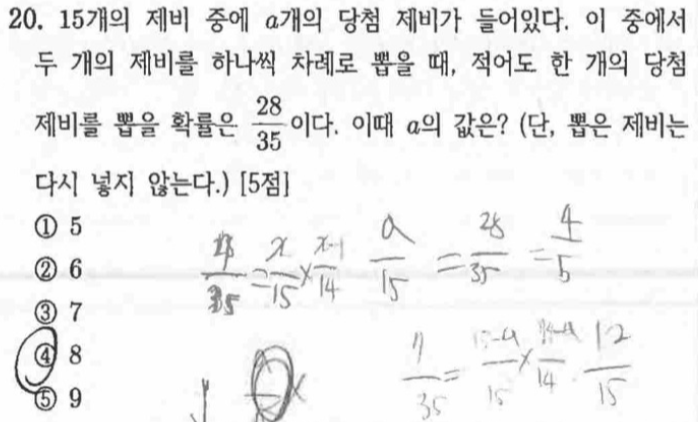 20. 15개의 제비 중에 a개의 당첨 제비가 들어있다. 이 중에서
두 개의 제비를 하나씩 차례로 뽑을 때, 적어도 한 개의 당첨
제비를 뽑을 확률은 28/35이다. 이때 a의 값은? (단, 뽑은 제비는
다시 넣지 않는다.) [5점]
① 5
② 6
③ 7
④ 8
⑤ 9
35 = x/15 × x-1/14
a/15 = 28/35 = 4/5
7/35 = 15-a/15 × 14-a/14
12/15